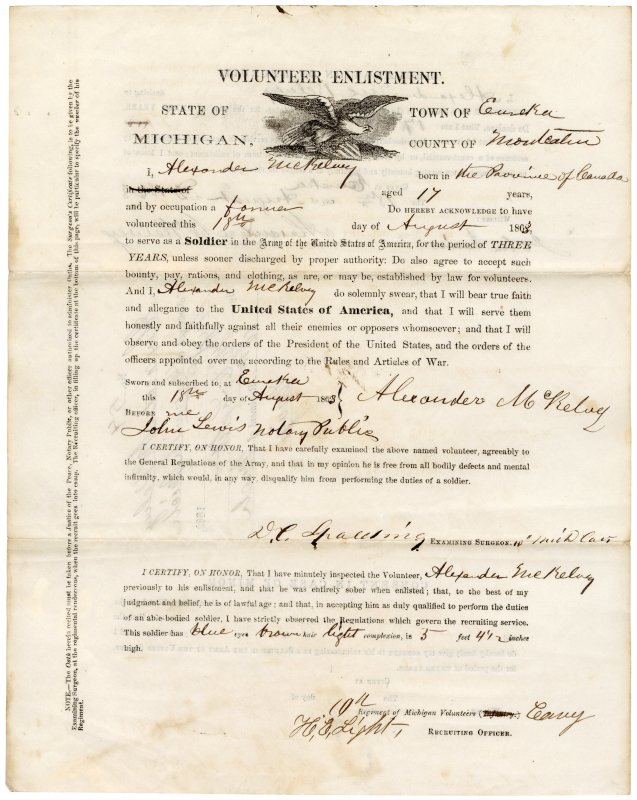 VOLUNTEER ENLISTMENT.
STATE OF
MICHIGAN,
TOWN OF Eureka
COUNTY OF Montcalm
I, Alexander McKelvey born in the Province of Canada
in the State of aged 17 years,
and by occupation a Farmer DO HEREBY ACKNOWLEDGE to have
volunteered this 18th day of August 1863,
to serve as a Soldier in the Army of the United States of America, for the period of THREE
YEARS, unless sooner discharged by proper authority: Do also agree to accept such
bounty, pay, rations, and clothing, as are, or may be, established by law for volunteers.
And I, Alexander McKelvey do solemnly swear, that I will bear true faith
and allegiance to the United States of America, and that I will serve them
honestly and faithfully against all their enemies or opposers whomsoever; and that I will
observe and obey the orders of the President of the United States, and the orders of the
officers appointed over me, according to the Rules and Articles of War.
Sworn and subscribed to, at Eureka
this 18th day of August 1863
Alexander McKelvey
BEFORE me
John Lewis Notary Public
I CERTIFY, ON HONOR, That I have carefully examined the above named volunteer, agreeably to
the General Regulations of the Army, and that in my opinion he is free from all bodily defects and mental
infirmity, which would, in any way, disqualify him from performing the duties of a soldier.
D.C. Spaulding EXAMINING SURGEON. 10th Mich Cav
I CERTIFY, ON HONOR, That I have minutely inspected the Volunteer, Alexander McKelvey
previously to his enlistment, and that he was entirely sober when enlisted; that, to the best of my
judgment and belief, he is of lawful age; and that, in accepting him as duly qualified to perform the duties
of an able-bodied soldier, I have strictly observed the Regulations which govern the recruiting service.
This soldier has blue eyes brown hair light complexion, is 5 feet 4 1/2 inches
high.
10th Regiment of Michigan Volunteers (Infantry.) Cavy
H.E. Light, RECRUITING OFFICER.
NOTE.—The Oath herein recited must be taken before a Justice of the Peace, Notary Public, or other officer authorized to administer Oaths. The Surgeon's Certificate following, is to be given by the
Examining Surgeon, at the regimental rendezvous, when the recruit goes into camp. The Recruiting officer, in filling up the certificate at the bottom of this page, will be particular to specify the number of his
Regiment.